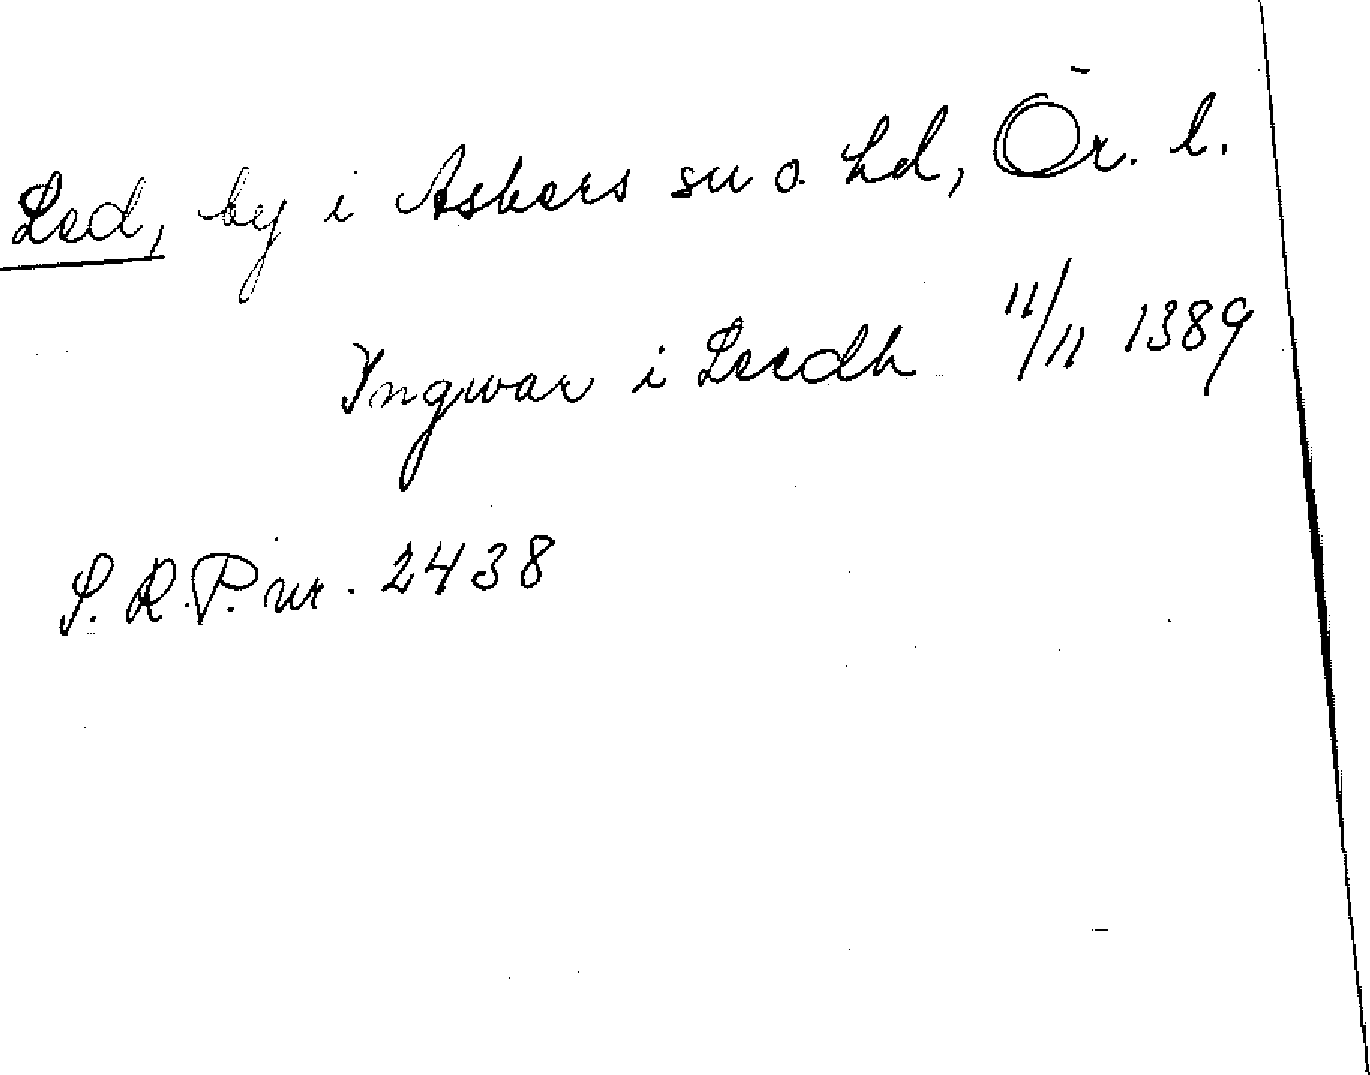 Led, by i Askers sn o. hd, Ör. l.
Ingwar i Leedh 11/11 1389
S. R. P. nr. 2438